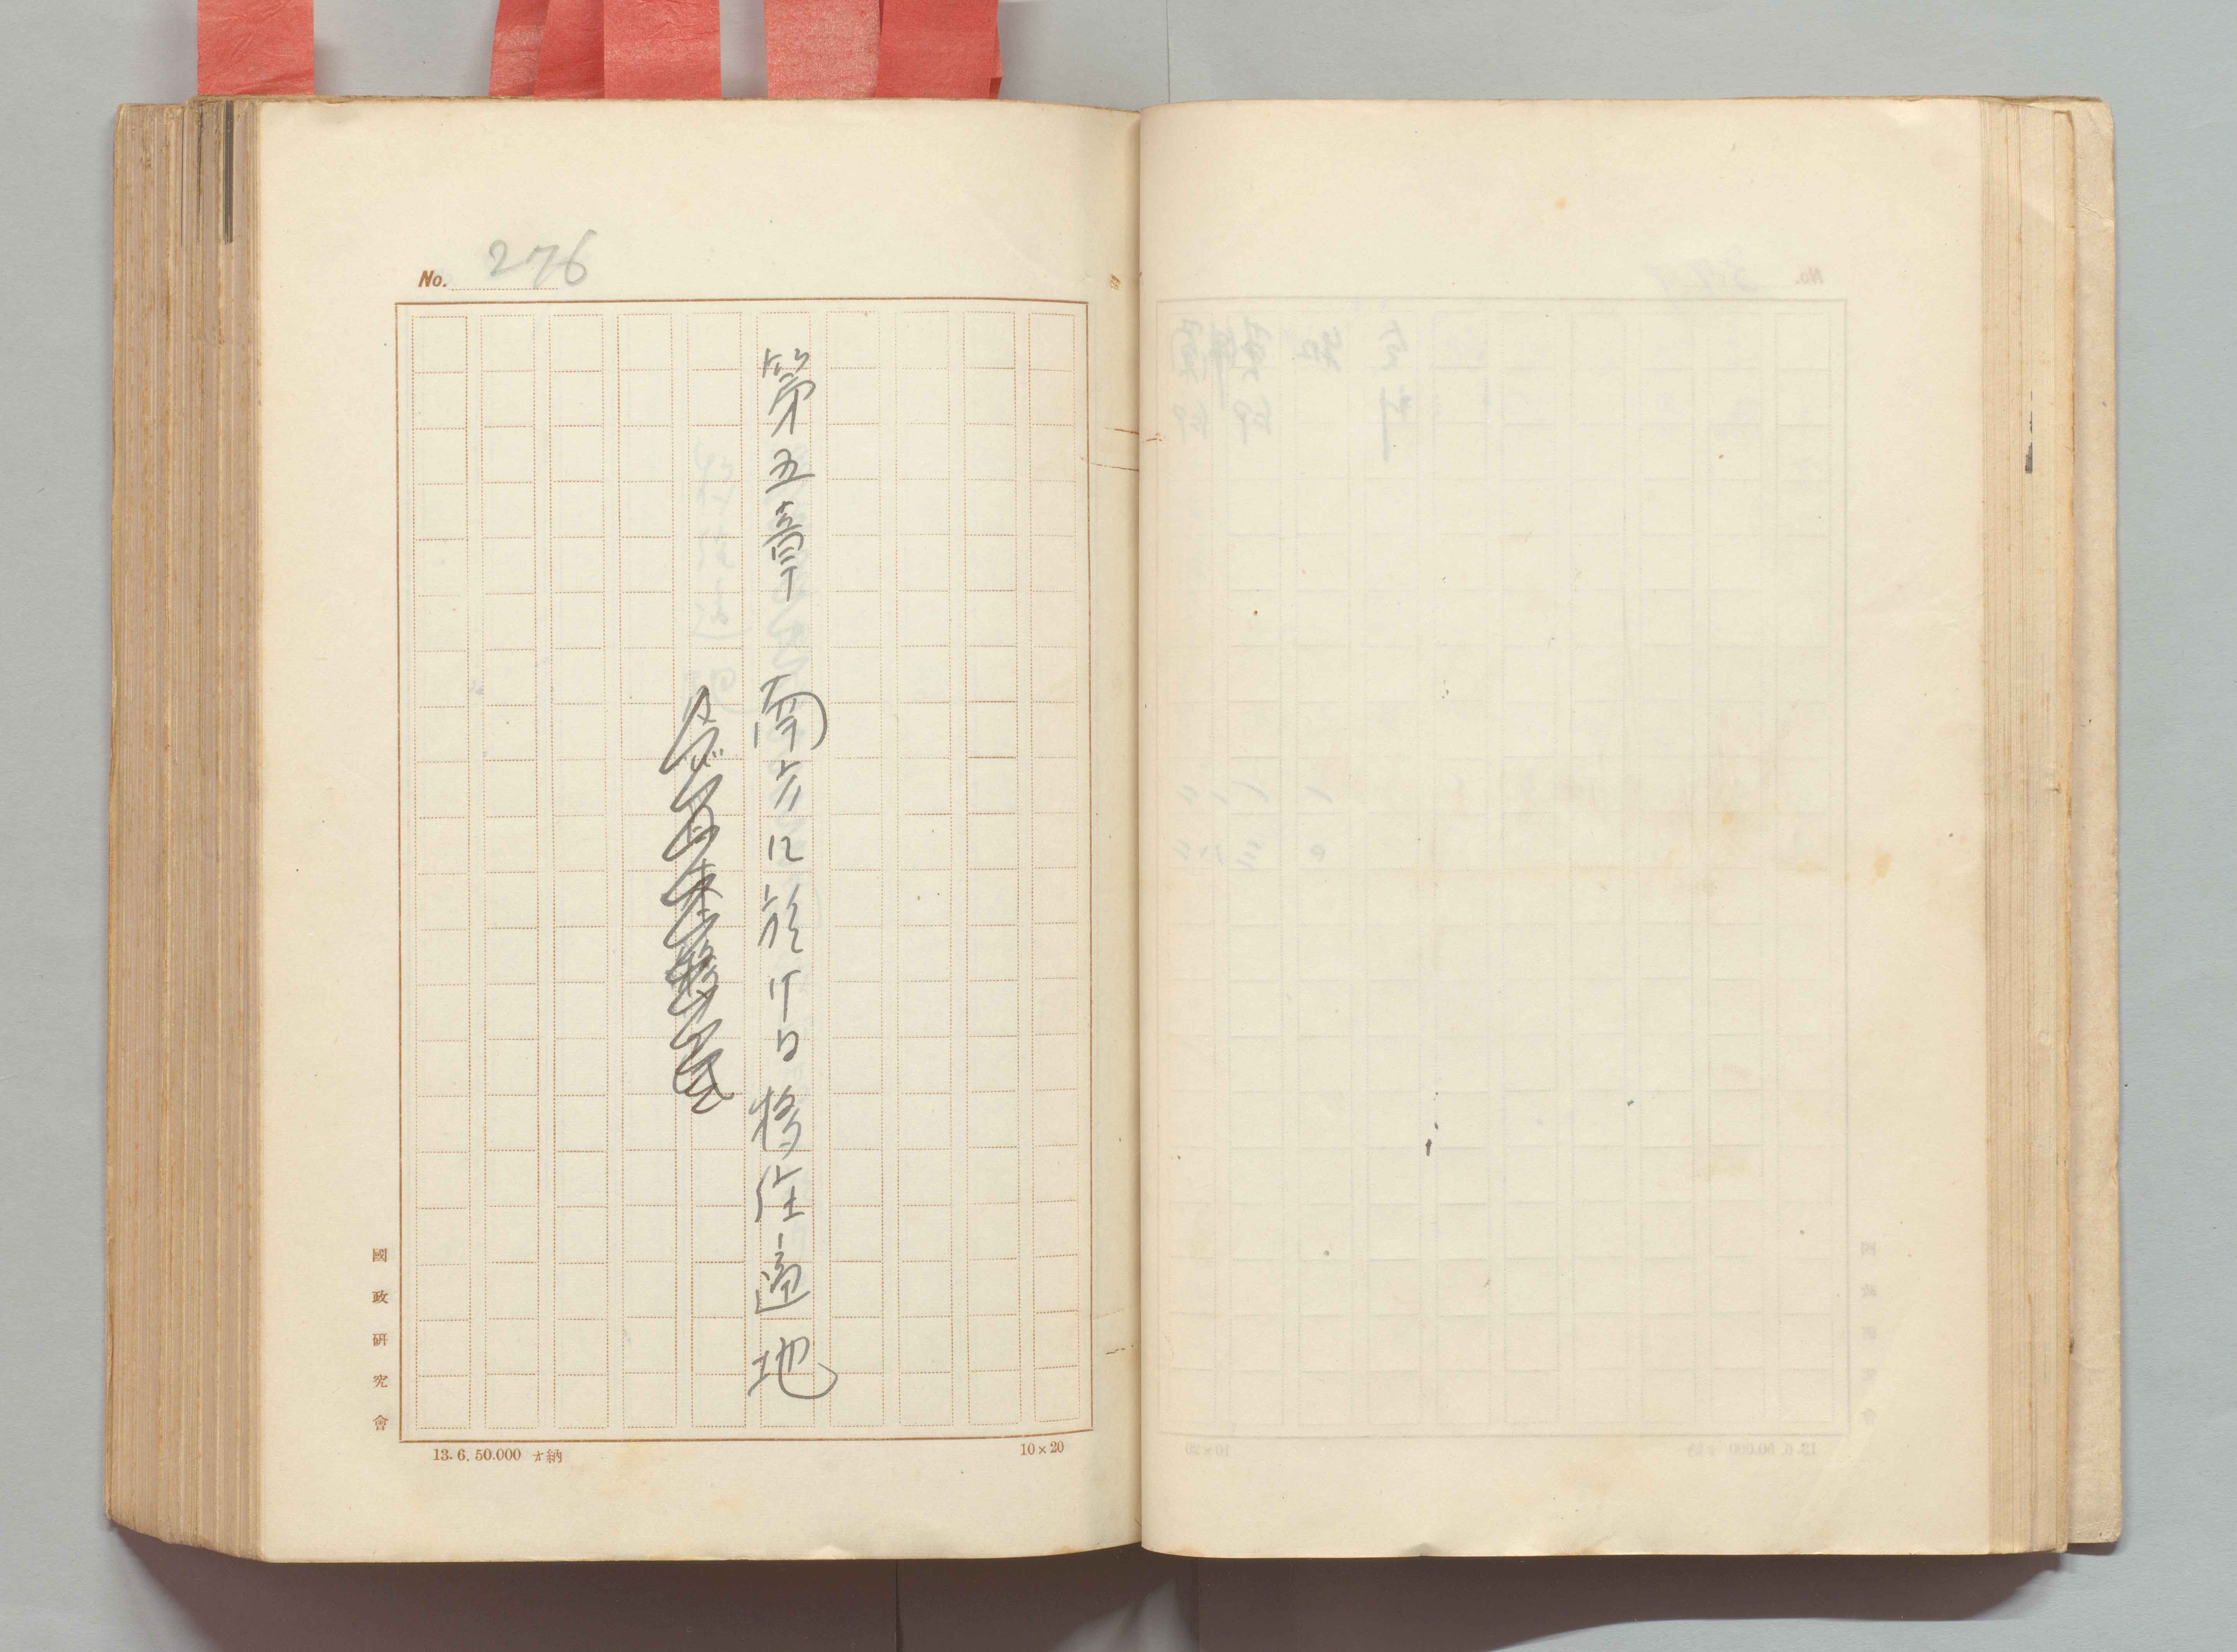 No. 276
第五章 南方に於ける移住適地
國政研究會
13. 6. 50.000 オ納
10×20